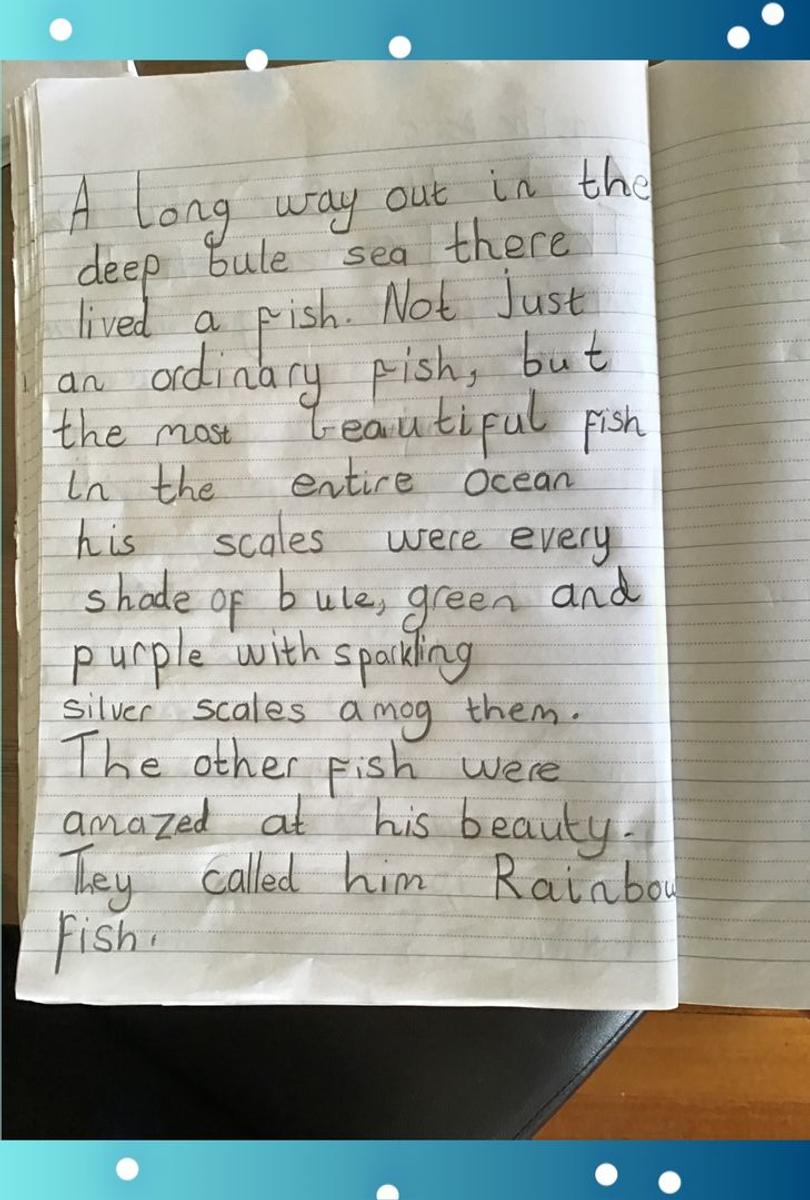 A long way out in the
deep bule sea there
lived a fish. Not just
an ordinary fish, but
the most beautiful fish
in the entire ocean
his scales were every
shade of bule, green and
purple with sparkling
silver scales amog them.
The other fish were
amazed at his beauty.
They called him Rainbow
Fish.